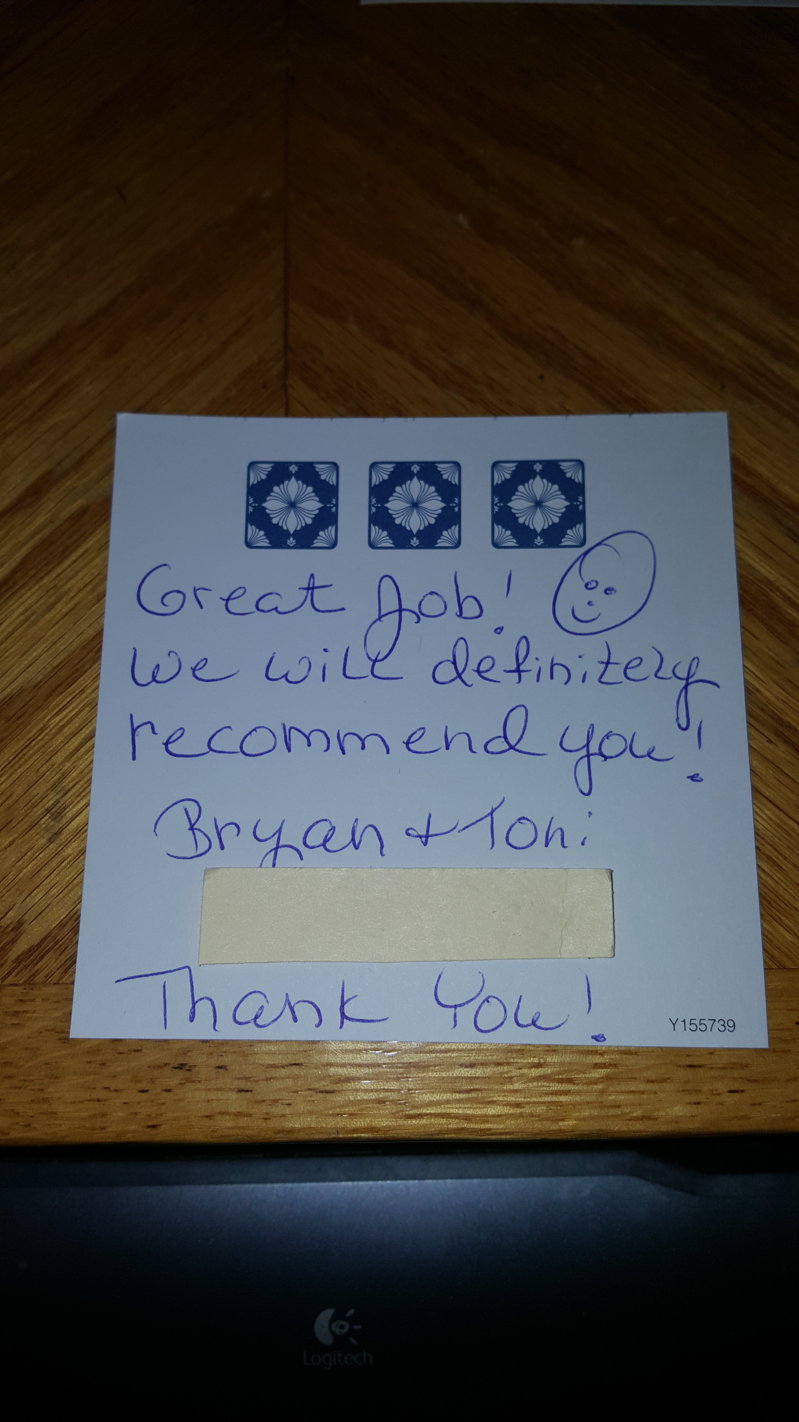 Great Job!
We will definitely
recommend you!
Bryan + Toni
Thank You!
Y155739
Logitech